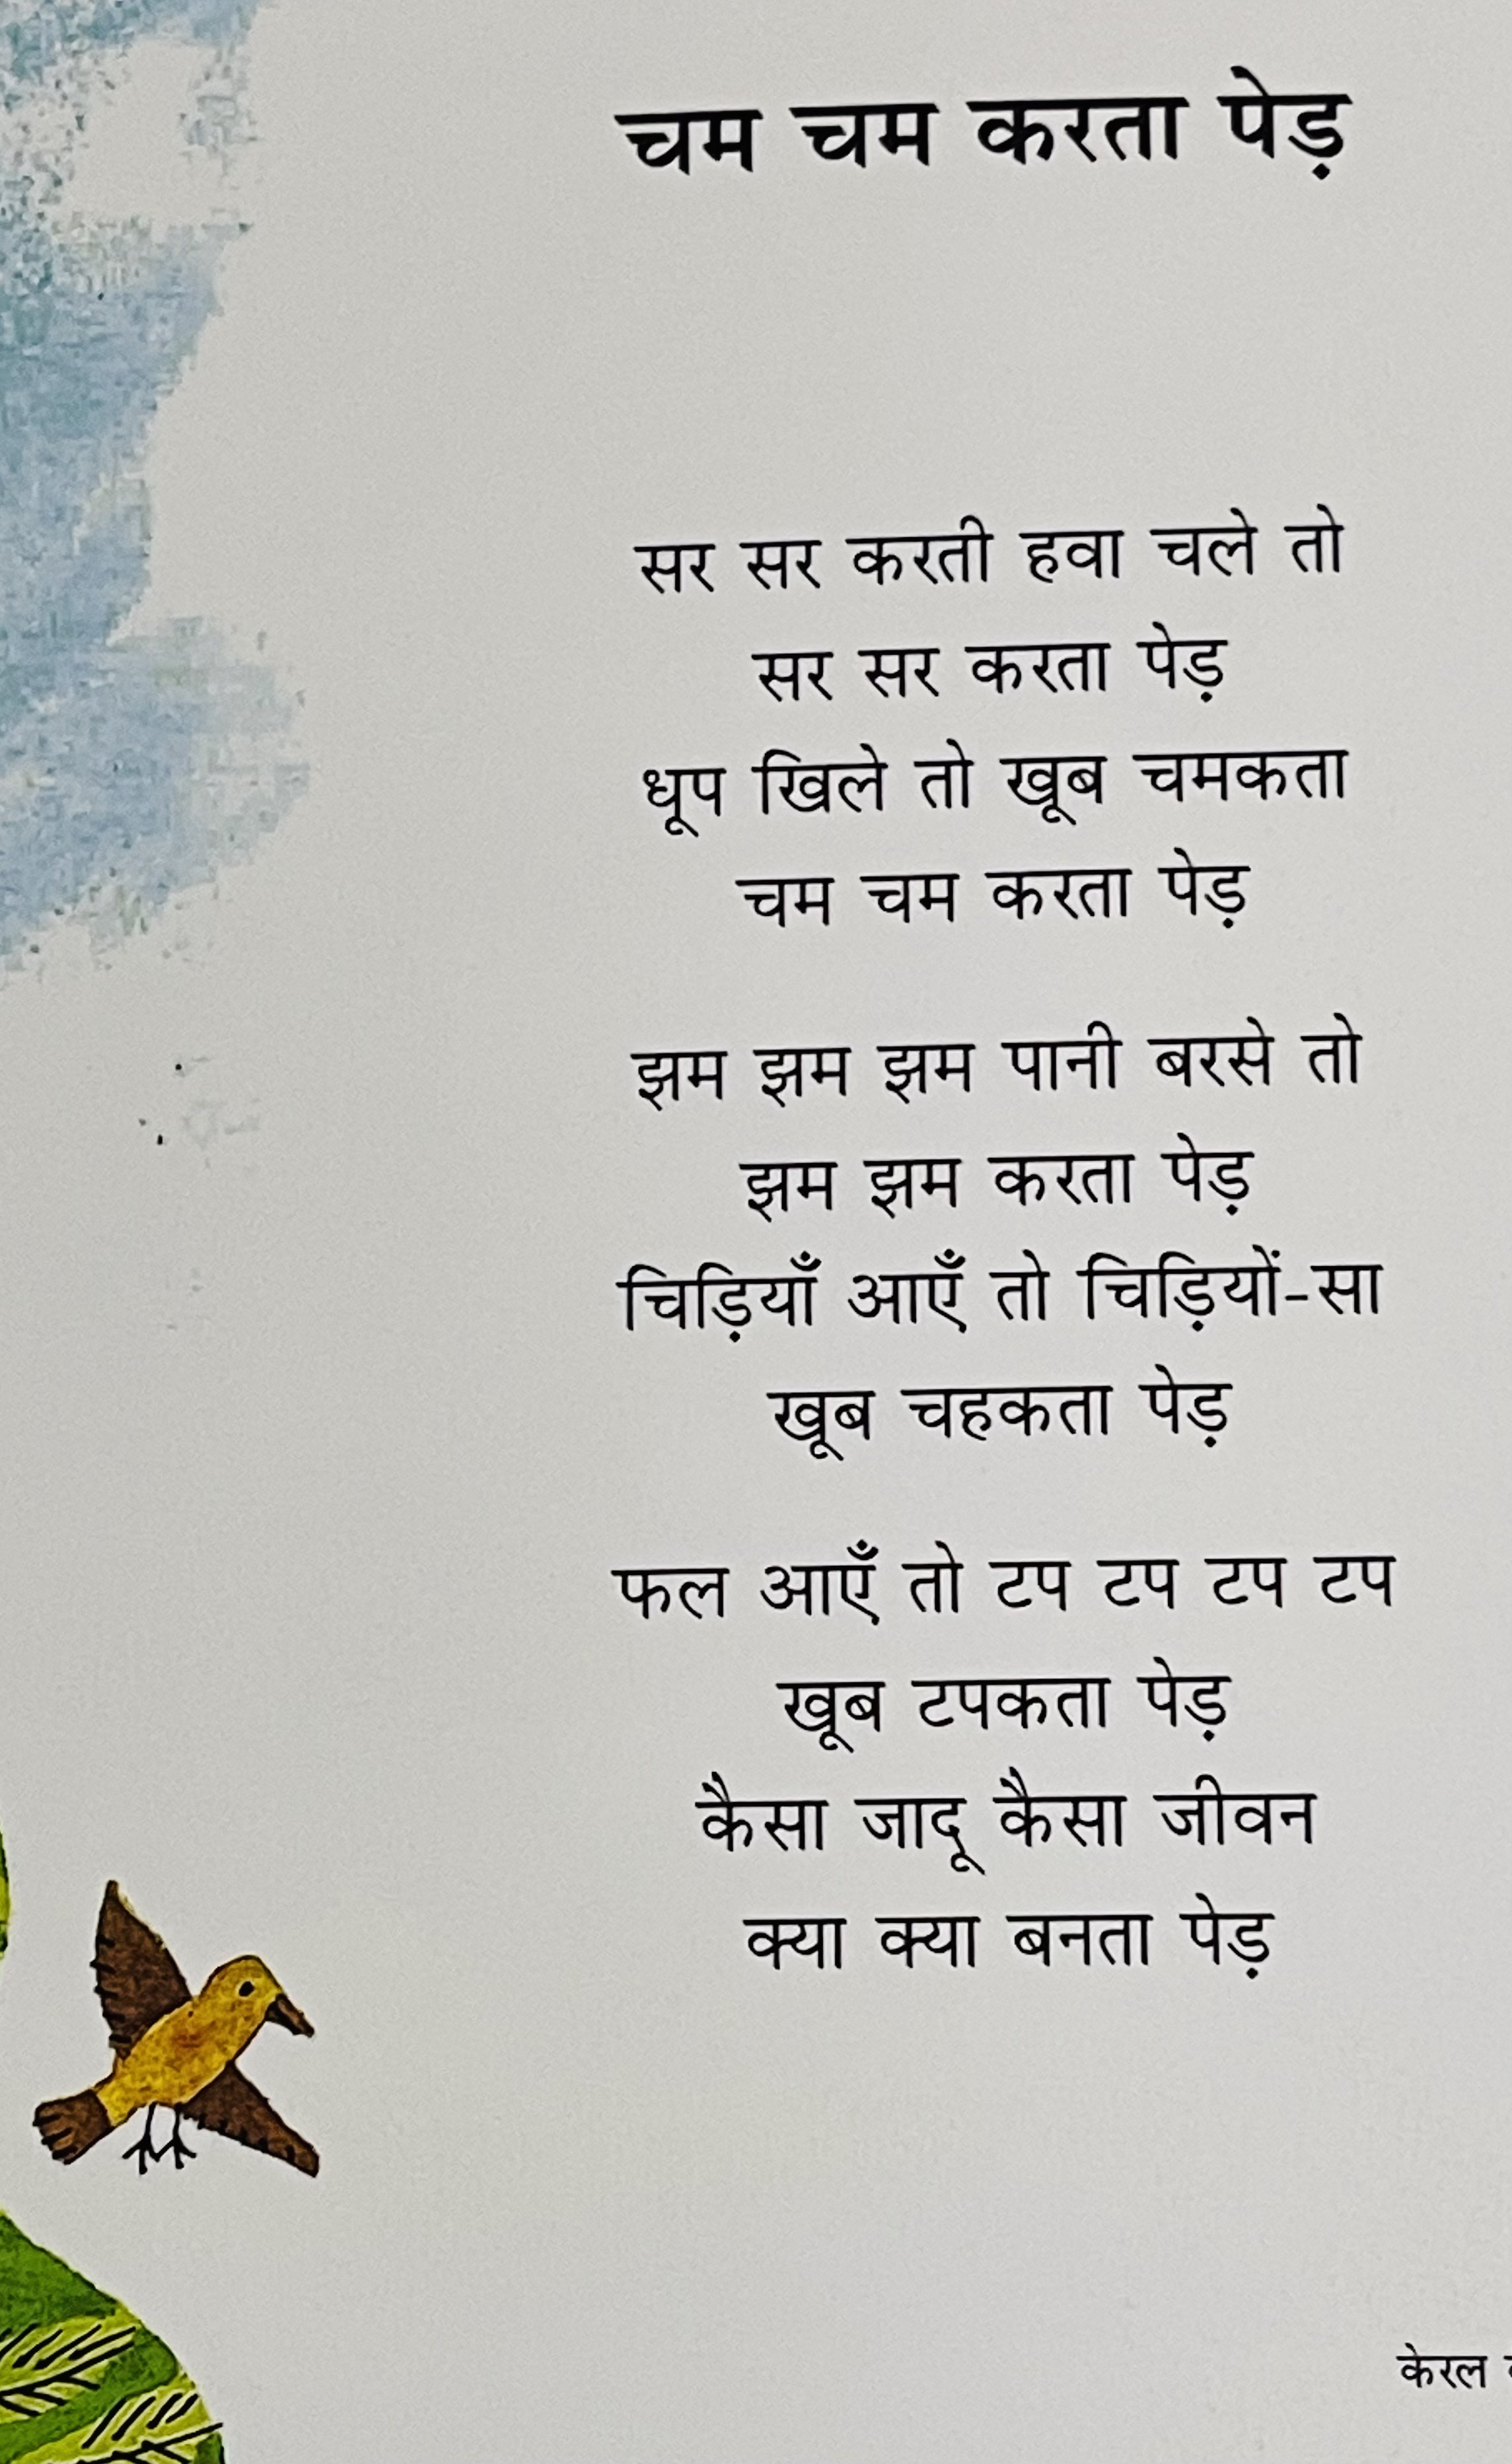 चम चम करता पेड़
सर सर करती हवा चले तो
सर सर करता पेड़
धूप खिले तो खूब चमकता
चम चम करता पेड़
झम झम झम पानी बरसे तो
झम झम करता पेड़
चिड़ियाँ आएँ तो चिड़ियों-सा
खूब चहकता पेड़
फल आएँ तो टप टप टप टप
खूब टपकता पेड़
कैसा जादू कैसा जीवन
क्या क्या बनता पेड़
केरल